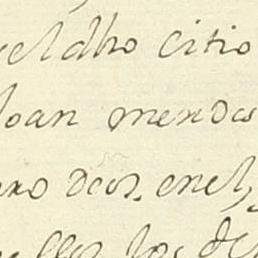 el dho citio
Joan mendos
dios, enel,
ellos los de